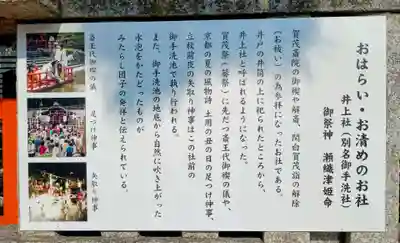 おはらい・お清めのお社
井上社（別名御手洗社）
御祭神　瀬織津姫命
賀茂斎院の御禊や解斎、関白賀茂詣の解除
（お祓い）の為参拝になったお社である。
井戸の井筒の上に祀られたところから、
井上社と呼ばれるようになった。
賀茂祭（葵祭）に先だつ斎王代御禊の儀や、
京都の夏の風物詩　土用の丑の日の足つけ神事、
立秋前夜の矢取り神事はこの社前の
御手洗池で執り行われる。
また、御手洗池の地底から自然に吹き上がった
水泡をかたどったものが
みたらし団子の発祥と伝えられている。
斎王代御禊の儀
足つけ神事
矢取り神事